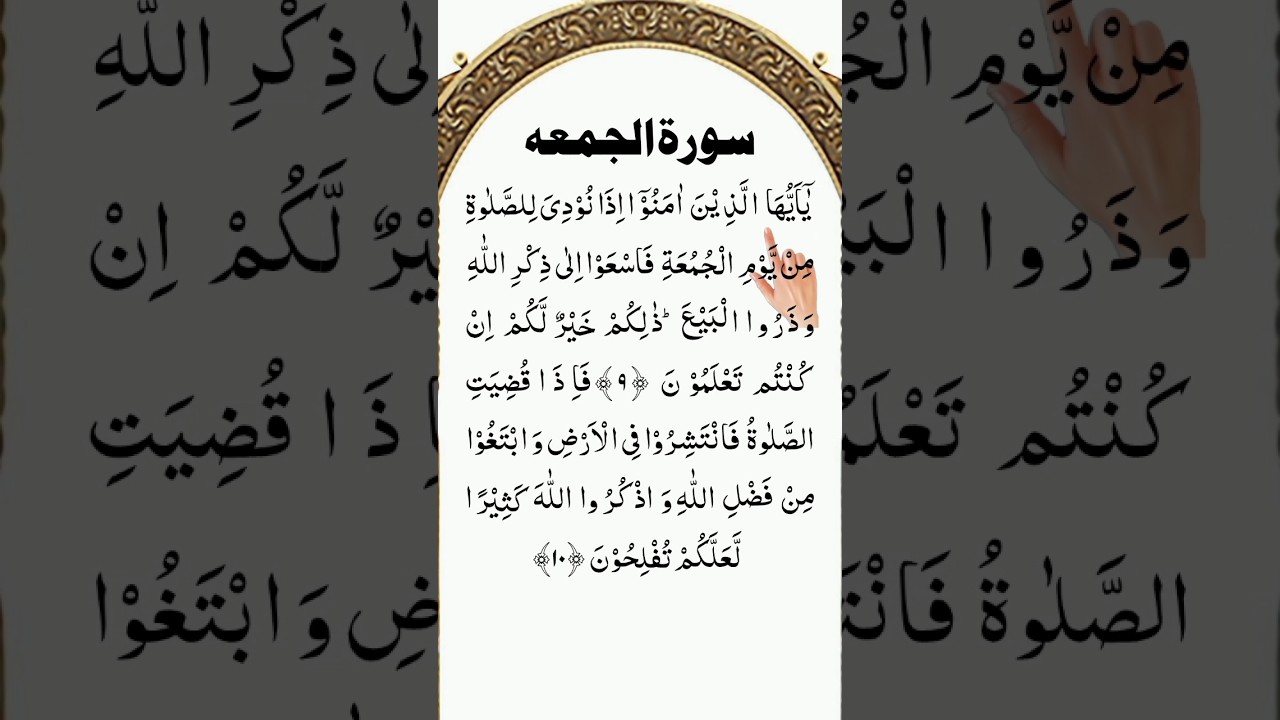 سورة الجمعه
يٰٓاَيُّهَا الَّذِيْنَ اٰمَنُوْٓا اِذَا نُوْدِىَ لِلصَّلٰوةِ
مِنْ يَّوْمِ الْجُمُعَةِ فَاسْعَوْا اِلٰى ذِكْرِ اللّٰهِ
وَذَرُوا الْبَيْعَ ؕ ذٰلِكُمْ خَيْرٌ لَّكُمْ اِنْ
كُنْتُم تَعْلَمُوْنَ ﴿۹﴾ فَاِذَا قُضِيَتِ
الصَّلٰوةُ فَانْتَشِرُوْا فِى الْاَرْضِ وَابْتَغُوْا
مِنْ فَضْلِ اللّٰهِ وَاذْكُرُوا اللّٰهَ كَثِيْرًا
لَّعَلَّكُمْ تُفْلِحُوْنَ ﴿۱۰﴾